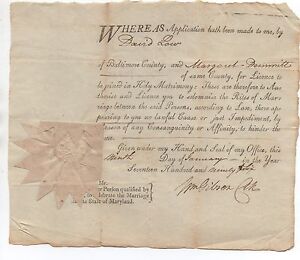 WHEREAS Application hath been made to me, by
David Low
of Baltimore County, and Margaret
of same County, for Licence to
be joined in Holy Matrimony: These are therefore to Au-
thorise and License you to solemnize the Rites of Mar-
riage between the said Persons, according to Law, there ap-
pearing to you no lawful Cause or just Impediment, by
Reason of any Consanguinity or Affinity, to hinder the
same.
Given under my Hand and Seal of my Office, this
Ninth Day of January in the Year
Seventeen Hundred and Ninety
Wm Gibson Clk
Mr.
or Person qualified by
celebrate the Marriage
State of Maryland.